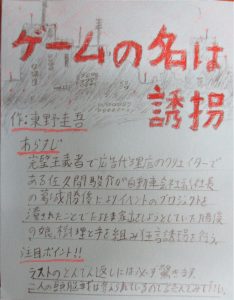 ゲームの名は
誘拐
作:東野圭吾
あらすじ
完璧主義者で広告代理店のクリエイターで
ある佐久間駿介が自動車会社副社長
の葛城勝俊によりイベントのプロジェクトを
潰されたことで
の娘、樹理と手を組み狂言誘拐を行う。
注目ポイント!!
ラストのどんでん返しには必ず驚きます。
この頭脳